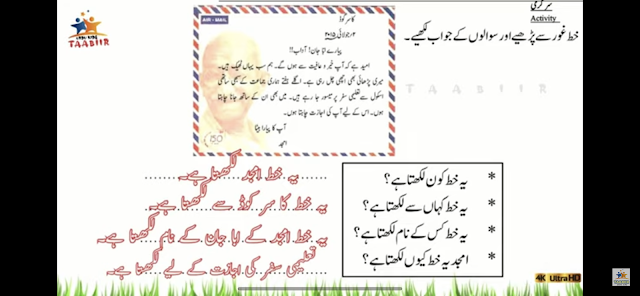 سرگرمی
Activity
خط غور سے پڑھیے اور سوالوں کے جواب لکھیے۔
TAABIIR
TAABIIR
AIR - MAIL
کاسرکوڈ
۲؍جولائی ۲۰۱۵
پیارے ابّا جان! آداب!!
امید ہے کہ آپ خیر و عافیت سے ہوں گے۔ ہم سب یہاں ٹھیک ہیں۔
میری پڑھائی بھی اچھی چل رہی ہے۔ اگلے ہفتے ہماری جماعت کے سبھی ساتھی
اسکول سے تعلیمی سفر پر میسور جا رہے ہیں۔ میں بھی ان کے ساتھ جانا چاہتا
ہوں۔ اس کے لیے آپ کی اجازت چاہتا ہوں۔
آپ کا پیارا بیٹا
امجد
150
* یہ خط کون لکھتا ہے؟
* یہ خط کہاں سے لکھتا ہے؟
* یہ خط کس کے نام لکھتا ہے؟
* امجد یہ خط کیوں لکھتا ہے؟
یہ خط امجد لکھتا ہے۔
یہ خط کاسرکوڈ سے لکھتا ہے۔
یہ خط امجد کے ابا جان کے نام لکھتا ہے۔
تعلیمی سفر کی اجازت کے لیے لکھتا ہے۔
4K UltraHD